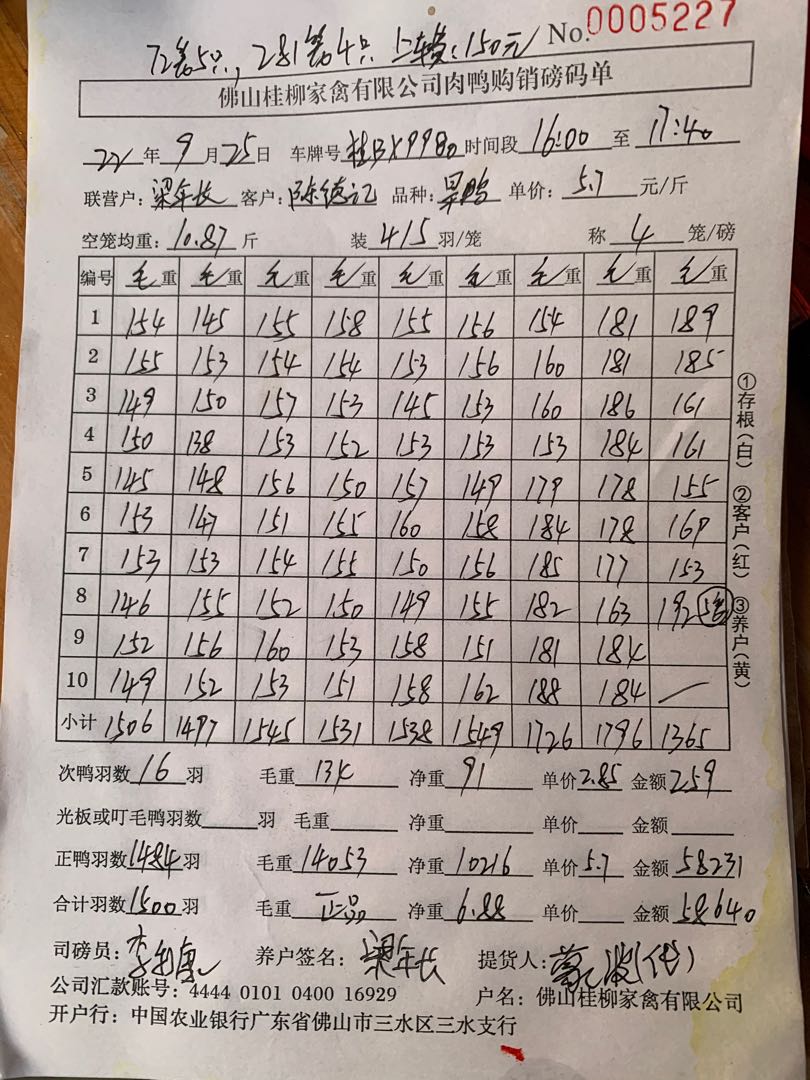 No.0005227
72笼5只，281笼4只 上车费：150元
佛山桂柳家禽有限公司肉鸭购销磅码单
22 年 9 月 25 日 车牌号 桂BX9980 时间段 16:00 至 17:40
联营户：梁年长 客户：陈德记 品种：旱鸭 单价：5.7 元/斤
空笼均重：10.87 斤 装 4/5 羽/笼 称 4 笼/磅
编号 毛重 毛重 毛重 毛重 毛重 毛重 毛重 毛重 毛重
1 154 145 155 158 155 156 154 181 189
2 155 153 154 154 153 156 160 181 185
3 149 150 157 153 145 153 160 186 161
4 150 138 153 152 153 153 153 184 161
5 145 148 156 150 157 149 179 178 155
6 153 147 151 155 160 158 184 178 169
7 153 153 154 155 150 156 185 177 153
8 146 155 152 150 149 155 182 163 192
9 152 156 160 153 158 151 181 184
10 149 152 153 151 158 162 188 184 /
小计 1506 1497 1545 1531 1538 1549 1726 1796 1365
①存根（白） ②客户（红） ③养户（黄）
次鸭羽数 16 羽 毛重 134 净重 91 单价 2.85 金额 259
光板或叮毛鸭羽数 羽 毛重 净重 单价 金额
正鸭羽数 1484 羽 毛重 14053 净重 10216 单价 5.7 金额 58231
合计羽数 1500 羽 毛重 正品 净重 6.88 单价 金额 58640
司磅员： 养户签名：梁年长 提货人：（代）
公司汇款账号：4444 0101 0400 16929 户名：佛山桂柳家禽有限公司
开户行：中国农业银行广东省佛山市三水区三水支行